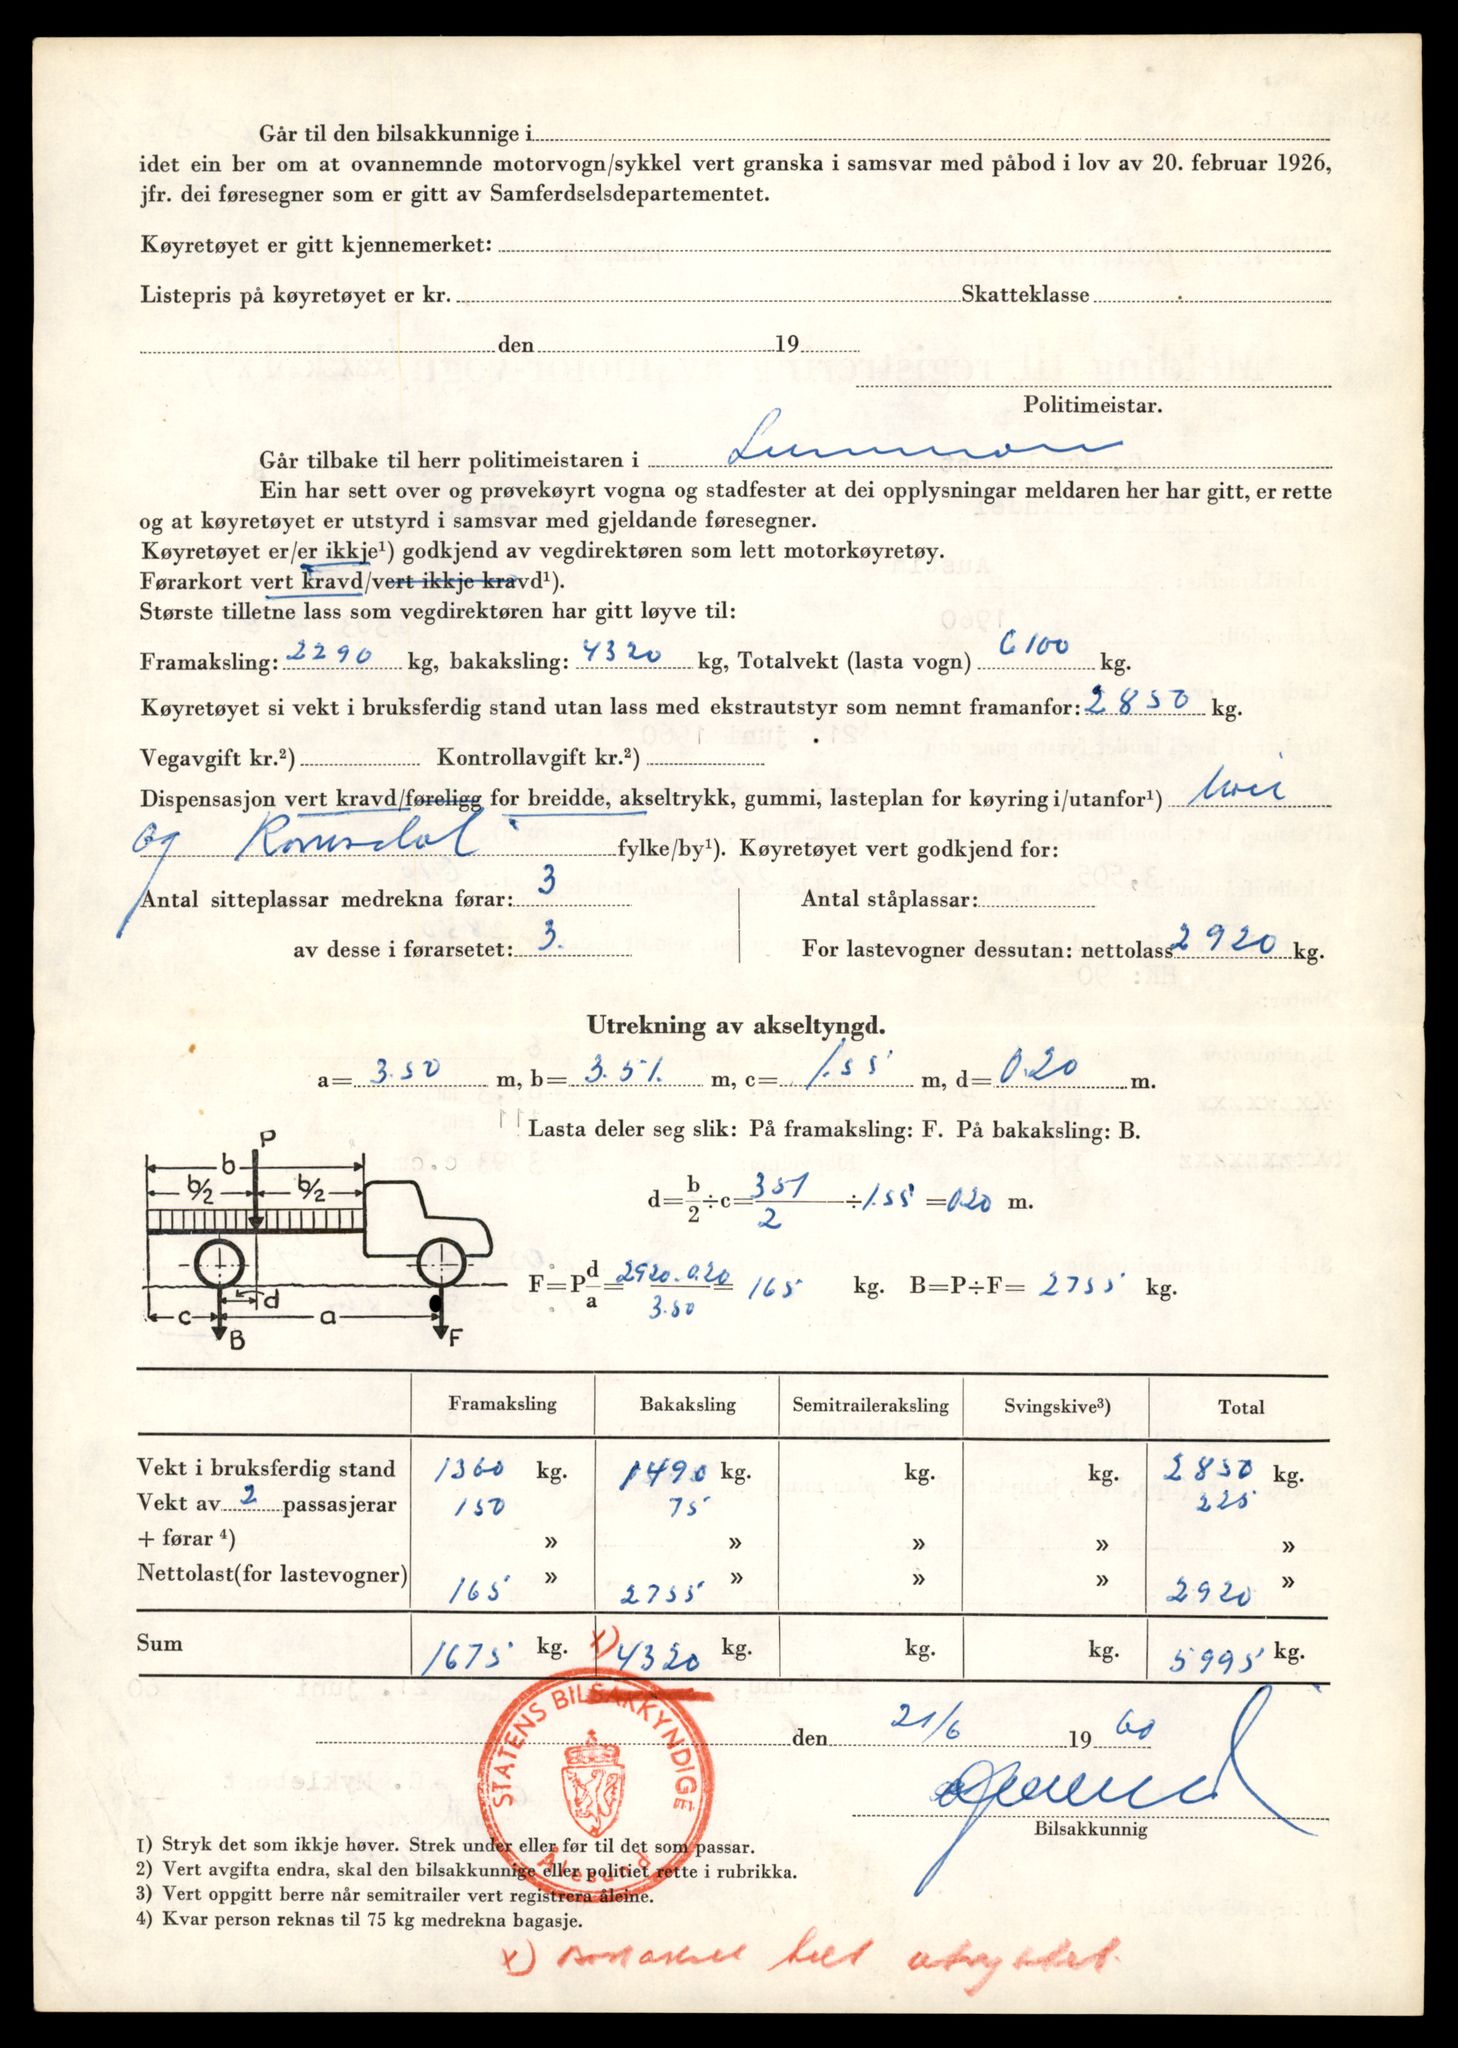 Går til den bilsakkunnige i
idet ein ber om at ovannemnde motorvogn/sykkel vert granska i samsvar med påbod i lov av 20. februar 1926,
jfr. dei føresegner som er gitt av Samferdselsdepartementet.
Køyretøyet er gitt kjennemerket:
Listepris på køyretøyet er kr. Skatteklasse
den 19
Politimeistar.
Går tilbake til herr politimeistaren i
Ein har sett over og prøvekøyrt vogna og stadfester at dei opplysningar meldaren her har gitt, er rette
og at køyretøyet er utstyrd i samsvar med gjeldande føresegner.
Køyretøyet er/er ikkje¹) godkjend av vegdirektøren som lett motorkøyretøy.
Førarkort vert kravd/vert ikkje kravd¹).
Største tilletne lass som vegdirektøren har gitt løyve til:
Framaksling: 2290 kg, bakaksling: 4320 kg, Totalvekt (lasta vogn) 6100 kg.
Køyretøyet si vekt i bruksferdig stand utan lass med ekstrautstyr som nemnt framanfor: 2850 kg.
Vegavgift kr.²) Kontrollavgift kr.²)
Dispensasjon vert kravd/føreligg for breidde, akseltrykk, gummi, lasteplan for køyring i/utanfor¹)
og Romsdal fylke/by¹). Køyretøyet vert godkjend for:
Antal sitteplassar medrekna førar: 3 Antal ståplassar:
av desse i førarsetet: 3. For lastevogner dessutan: nettolass 2920 kg.
Utrekning av akseltyngd.
a= 3.50 m, b= 3.51. m, c= 1.55 m, d= 0.20 m.
Lasta deler seg slik: På framaksling: F. På bakaksling: B.
P
b
b/2 b/2
d=b/2÷c= 351/2 ÷ 1.55 = 0.20 m.
F=P d/a= 2920.0.20/3.50 = 165 kg. B=P÷F= 2755 kg.
d
c a
B F
Framaksling Bakaksling Semitraileraksling Svingskive³) Total
Vekt i bruksferdig stand 1360 kg. 1490 kg. kg. kg. 2850 kg.
Vekt av 2 passasjerar 150 75 225
+ førar ⁴) » » » » »
Nettolast(for lastevogner) 165 » 2755 » » » 2920 »
Sum 1675 kg. x) 4320 kg. kg. kg. 5995 kg.
den 21/6 19 60
STATENS BILSAKKYNDIGE
Ålesund
Bilsakkunnig
1) Stryk det som ikkje høver. Strek under eller før til det som passar.
2) Vert avgifta endra, skal den bilsakkunnige eller politiet rette i rubrikka.
3) Vert oppgitt berre når semitrailer vert registrera åleine.
4) Kvar person reknas til 75 kg medrekna bagasje.
x) helt utnyttet.